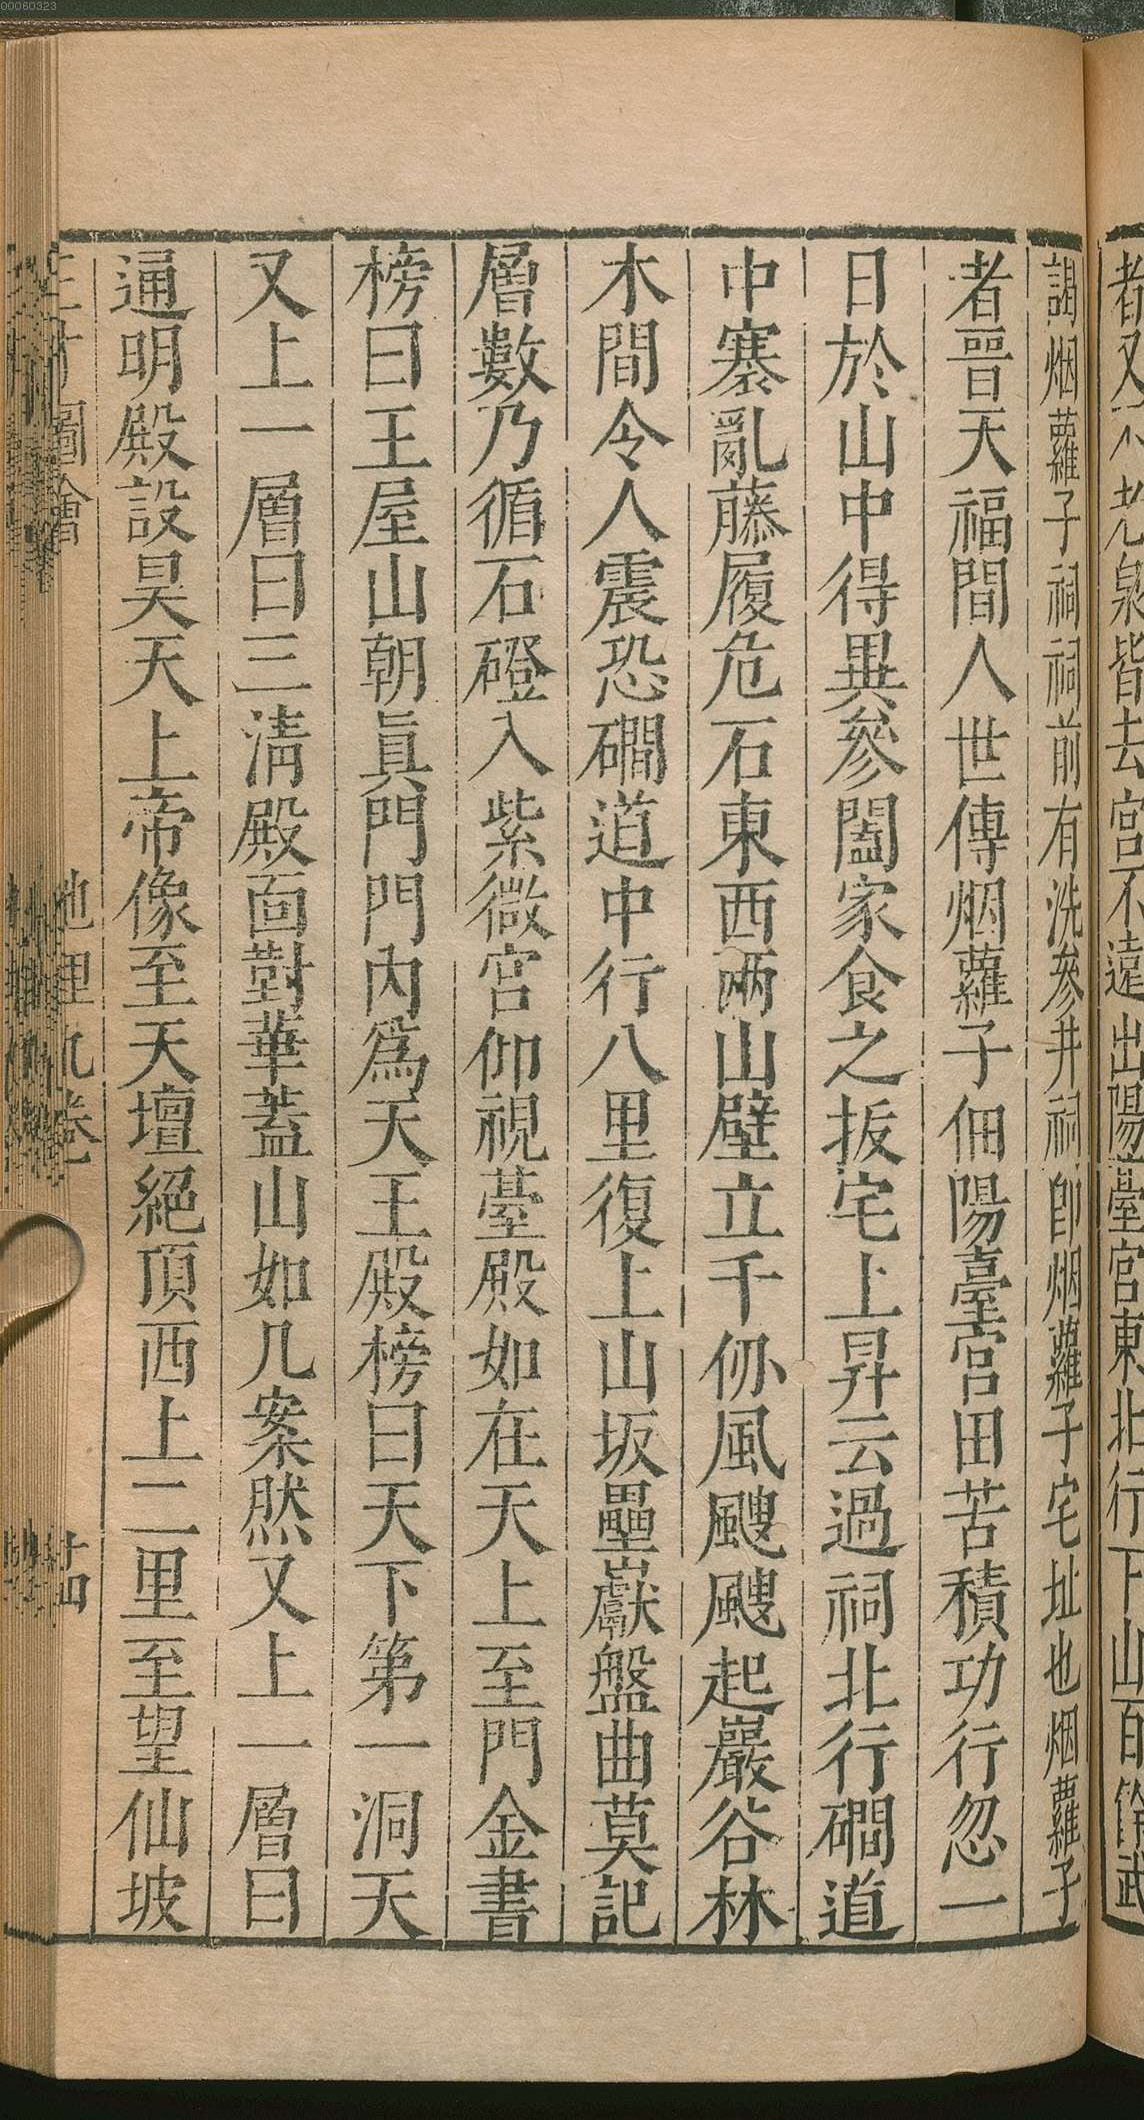 00060323
者又不老泉皆去宮不遠出陽臺宮東北行下山百餘武
謁烟蘿子祠祠前有洗參井祠卽烟蘿子宅址也烟蘿子
者晉天福間人世傳烟蘿子佃陽臺宮田苦積功行忽一
日於山中得異參闔家食之拔宅上昇云過祠北行磵道
中寨亂藤履危石東西兩山壁立千仞風颼颼起巖谷林
木間令人震恐磵道中行八里復上山坂壘巘盤曲莫記
層數乃循石磴入紫微宮仰視臺殿如在天上至門金書
榜曰王屋山朝眞門門內爲天王殿榜曰天下第一洞天
又上一層曰三淸殿面對華蓋山如几案然又上一層曰
通明殿設昊天上帝像至天壇絕頂西上二里至望仙坡
三才圖會 地理九卷 廿四